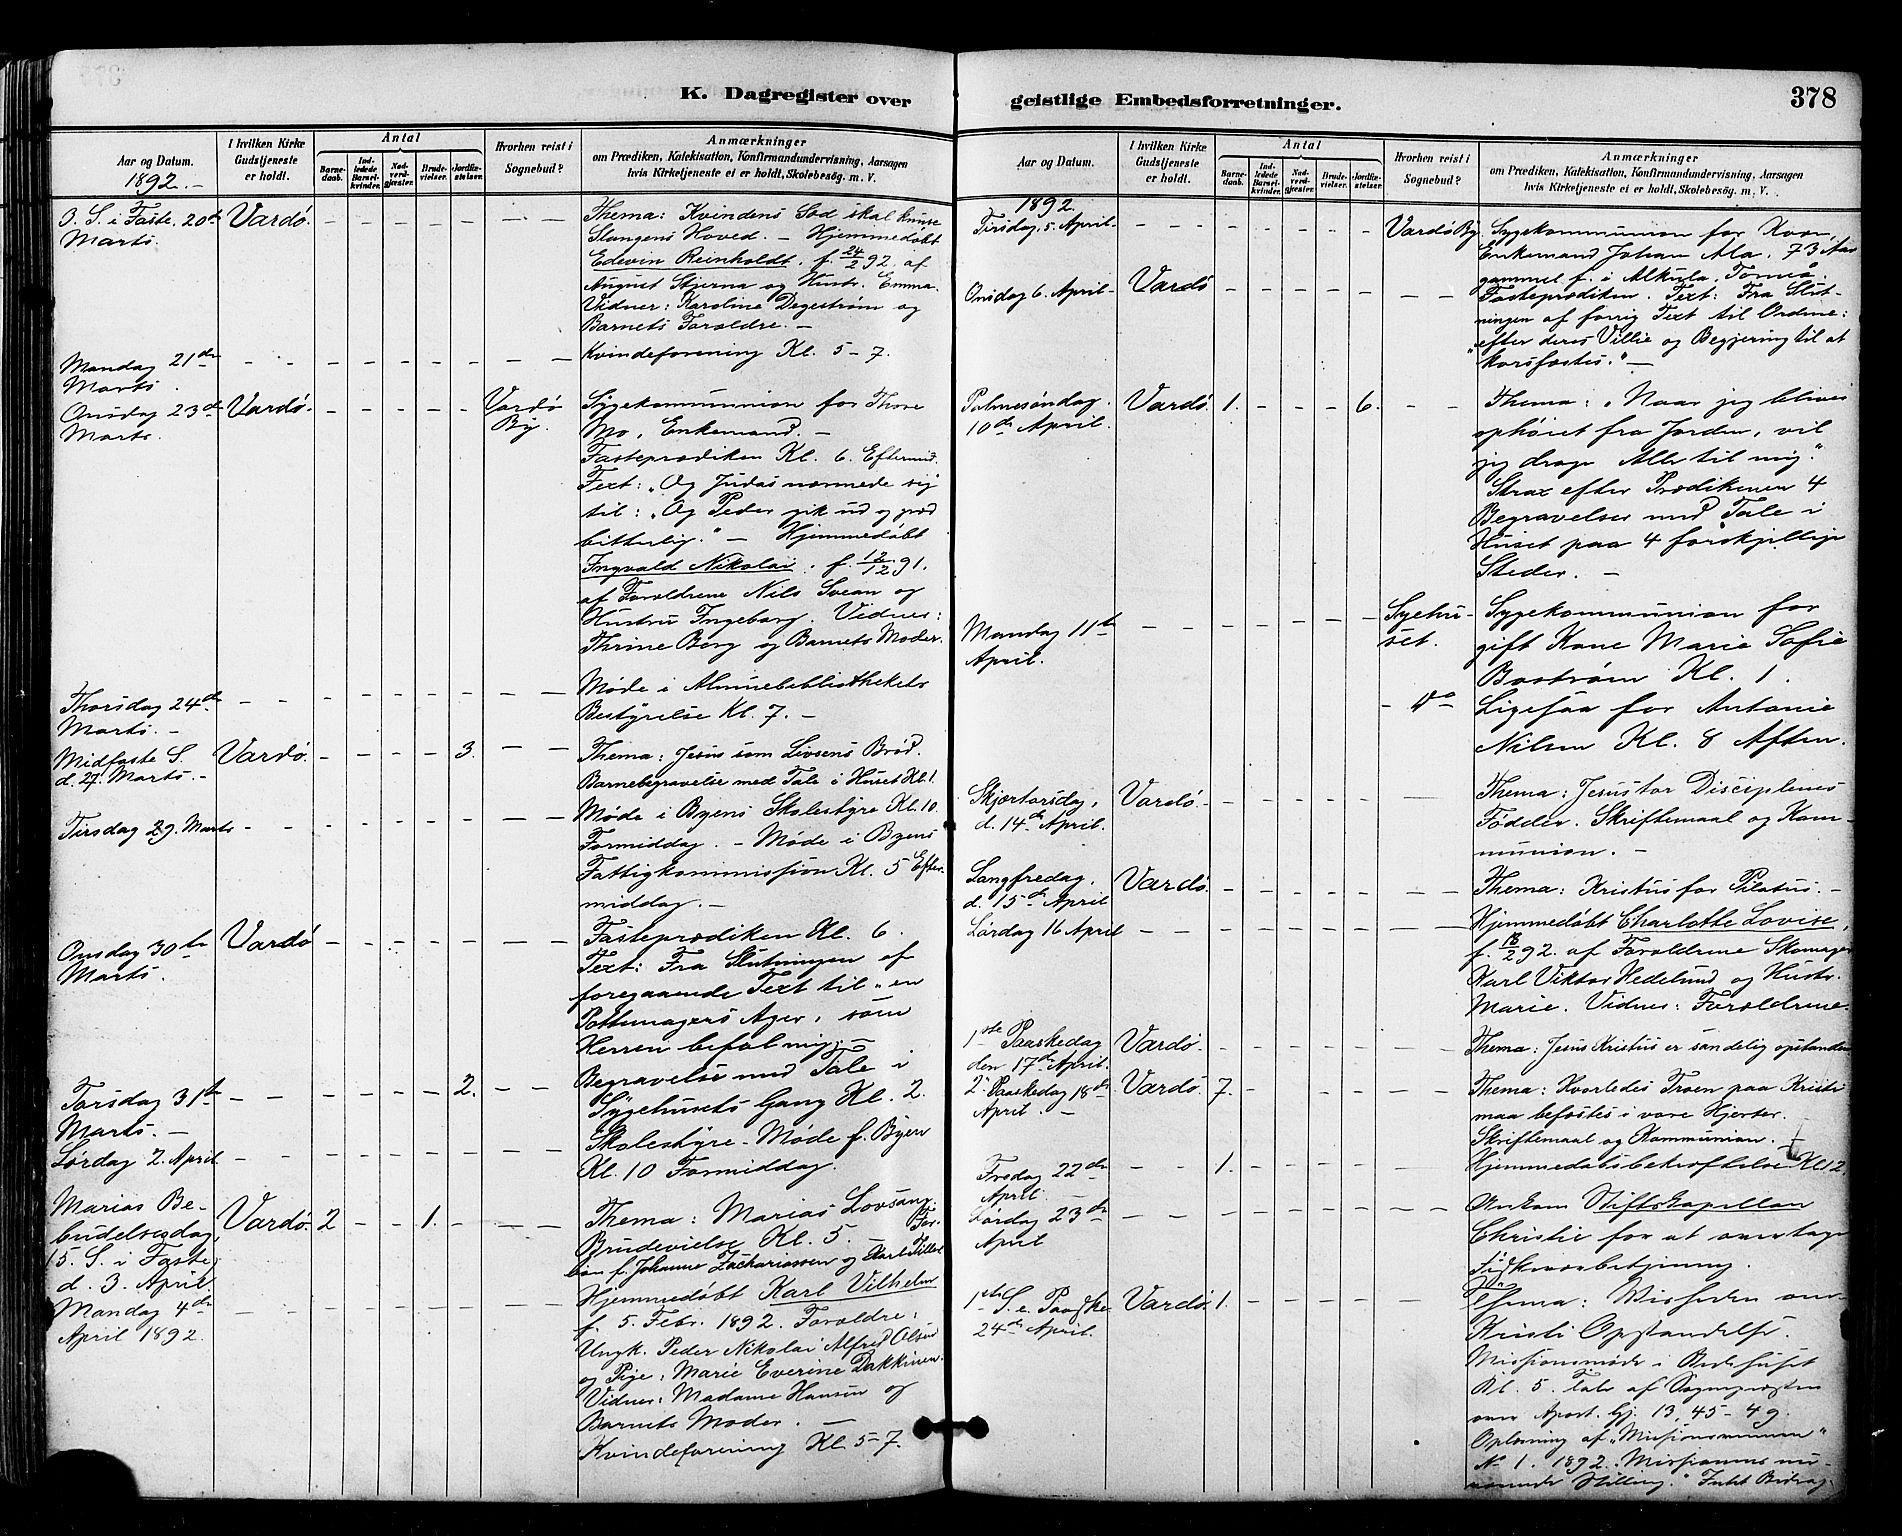 K. Dagregister over
Aar og Datum.
1892.-
I hvilken Kirke
Gudstjeneste
er holdt.
Antal
Barne-
daab.
Ind-
ledede
Barsel-
kvinder.
Nad-
verd-
gjester.
Brude-
vielser.
Jordfæ-
stelser.
Hvorhen reist i
Sognebud?
Anmærkninger
om Prædiken, Katekisation, Konfirmandundervisning, Aarsagen
hvis Kirketjeneste ei er holdt, Skolebesög. m. V.
O. S. i Faste. 20de Vardø. - - - - - - - Thema: Kvindens Sæd skal knuse
Marts. Slangens Hoved. - Hjemmedøbt
Edevin Reinholdt, f. 24/2 92. af
August Stjerna og Hustr. Emma.
Vidner: Karoline Degestrøm og
Barnets Forældre. -
Mandag 21de - - - - - - - - - Kvindeforening Kl. 5-7.
Marts.
Onsdag 23de Vardø. - - - - - Vardø Sygekommunion for Thore
Marts. By. Mo, Enkemand. -
Fasteprædiken Kl. 6. Eftermid.
Text: "Og Judas nærmede sig
til: "Og Peder gik ud og græd
bitterlig." - Hjemmedøbt
Ingvald Nikolai. f. 12/12 91.
af Forældrene Nils Svean og
Hustru Ingeborg. Vidner:
Thrine Berg og Barnets Moder.
Thorsdag 24de - - - - - - - - - Møde i Almuebibliothekets
Marts. - Bestyrelse Kl. 7. -
Midfaste S. Vardø. - - - - 3. - - Thema: Jesus som Livsens Brød.
d. 27. Marts. - Barnebegravelse med Tale i Huset Kl. 1.
Tirsdag 29. Marts - - - - - - - - - Møde i Byens Skolestyre Kl. 10
Formiddag. - Møde i Byens
Fattigkommission Kl. 5 Efter-
middag. -
Onsdag 30te Vardø - - - - - - - Fasteprædiken Kl. 6.
Marts. Text: Fra Slutningen af
foregaaende Text til "en
Pottemagers Ager, som
Herren befol mig; -
Torsdag 31te - - - - - - 2. - - Begravelse med Tale i
Marts. - Sygehusets Gang Kl. 2.
Lørdag 2. April - - - - - - - - - Skolestyre-Møde f. Byen
Kl. 10 Formiddag.
Marias Be-
budelsesdag, Vardø. 2 - - 1. - - - Thema: Marias Lovsang.
5. S. i Faste, Brudevielse Kl. 5. - For-
d. 3. April. bøn f. Johanne Zachariassen og
Mandag 4de - - - - - - - - - Hjemmedøbt Karl Vilhelm
April 1892. f. 5. Febr. 1892. Forældre:
Ungk. Peder Nikolai Alfred Olsen
og Pige, Marie Everine Dakkinen.
Vidner: Madame Hansen og
Barnets Moder. -
Kvindeforening Kl. 5-7.
geistlige Embedsforretninger.
378
Aar og Datum.
I hvilken Kirke
Gudstjeneste
er holdt.
Antal
Barne-
daab.
Ind-
ledede
Barsel-
kvinder.
Nad-
verd-
gjester.
Brude-
vielser.
Jordfæ-
stelser.
Hvorhen reist i
Sognebud?
Anmærkninger
om Prædiken, Katekisation, Konfirmandundervisning, Aarsagen
hvis Kirketjeneste ei er holdt, Skolebesög. m. V.
1892.
Tirsdag, 5. April - - - - - - - Vardø By. Sygekommunion for Kvæn,
Enkemand Johan Ala, 73 Aar
gammel f. i Alkula, Torneå.
Onsdag 6. April - Vardø - - - - - - - Fasteprædiken. Text: Fra Slut-
ningen af forrig Text til Ordene:
"efter deres Villie og Begjering til at
korsfæstes." -
Palmesøndag. Vardø. 1. - - - 6. - - Thema: "Naar jeg bliver
10de April. ophøiet fra Jorden, vil
jeg drage Alle til mig."
Strax efter Prædikenen 4
Begravelser med Tale i
Huset paa 4 forskjellige
Steder. -
Mandag 11te - - - - - - - Sygehu- Sygekommunion for
April. set. gift Kone Marie Sofie
Bostrøm Kl. 1.
- Do Ligesaa for Antonie
Nilsen Kl. 8 Aften.
Skjærtorsdag, Vardø. - - - - - - - Thema: Jesus tor Disciplenes
d. 14de April. Fødder. Skriftemaal og Kom-
munion. -
Langfredag, Vardø. - - - - - - - Thema: Kristus for Pilatus. -
d. 15de April
Lørdag 16 April - - - - - - - - - Hjemmedøbt Charlotte Lovise,
f. 18/2 92. af Forældrene Skomager
Karl Viktor Hedelund og Hustr.
Marie. Vidner: Forældrene.
1ste Paaskedag Vardø. - - - - - - - Thema: Jesus Kristus er sandelig opstanden
den 17de April.
2. Paaskedag 18de Vardø. 7. - - - - - Thema: Hvorledes Troen paa Kristi
April - maa befæstes i vore Hjerter.
Skriftemaal og Kommunion. -
Fredag 22de - - 1. - - - - - - Hjemmedaabsbekræftelse Kl 12
April. -
Lørdag 23de - - - - - - - - - Ankom Stiftskapellan
April Christie for at overtage
betjening.
1ste S. e. Paaske Vardø. 1. - - - - - - Thema: Visheden om
24de April. Kristi Opstandelse.
Missionsmøde i Bedehuset
Kl. 5. Tale af Sognepræsten
over Apost. Gj. 13, 45-49.
Oplæsning af "
No 1. 1892. "Missionens nu-
værende Stilling." Intet Bidrag.